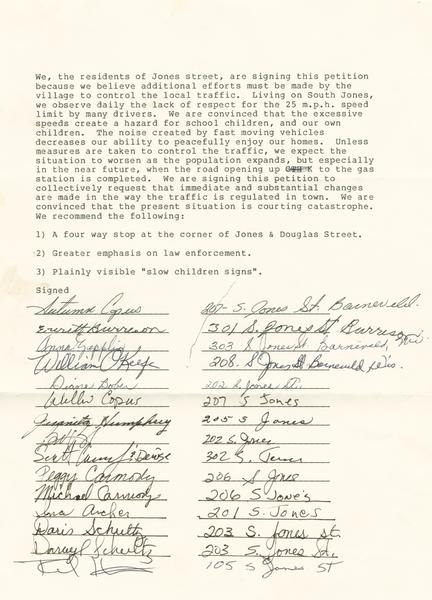 We, the residents of Jones street, are signing this petition
because we believe additional efforts must be made by the
village to control the local traffic. Living on South Jones,
we observe daily the lack of respect for the 25 m.p.h. speed
limit by many drivers. We are convinced that the excessive
speeds create a hazard for school children, and our own
children. The noise created by fast moving vehicles
decreases our ability to peacefully enjoy our homes. Unless
measures are taken to control the traffic, we expect the
situation to worsen as the population expands, but especially
in the near future, when the road opening up K to the gas
station is completed. We are signing this petition to
collectively request that immediate and substantial changes
are made in the way the traffic is regulated in town. We are
convinced that the present situation is courting catastrophe.
We recommend the following:
1) A four way stop at the corner of Jones & Douglas Street.
2) Greater emphasis on law enforcement.
3) Plainly visible "slow children signs".
Signed
Autumn Copus 207 S. Jones St. Barneveld.
Everitt Burreson 301 S. Jones St Burreson
Anna 303 S Jones St. Barneveld, Wi
William O'Keefe 208 S Jones St Barneveld Wis.
Diana Bober 202 S. Jones St.
Willis Copus 207 S Jones
Humphrey 205 S Jones
202 S. Jones
& Denise 302 S.
Peggy Carmody 206 S Jones
Michael Carmody 206 S Jones
Archer 201 S. Jones
Doris Schultz 203 S. Jones St.
Darryl Schultz 203 S. Jones St.
105 S Jones St